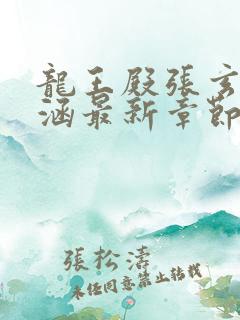 龍王殿張玄
涵最新章節
張松濤
未经同意禁止转载